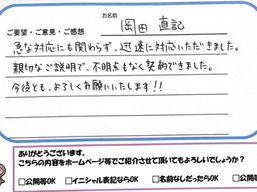 お名前
岡田 直記
ご要望・ご意見・ご感想
急な対応にも関わらず、迅速に対応いただきました。
親切なご説明で、不明点もなく契約できました。
今後とも、よろしくお願いいたします!!
ありがとうございます。
こちらの内容をホームページ等でご紹介させて頂いてもよろしいでしょうか?
□公開等OK □イニシャル表記ならOK □名前なしだったらOK □公開等